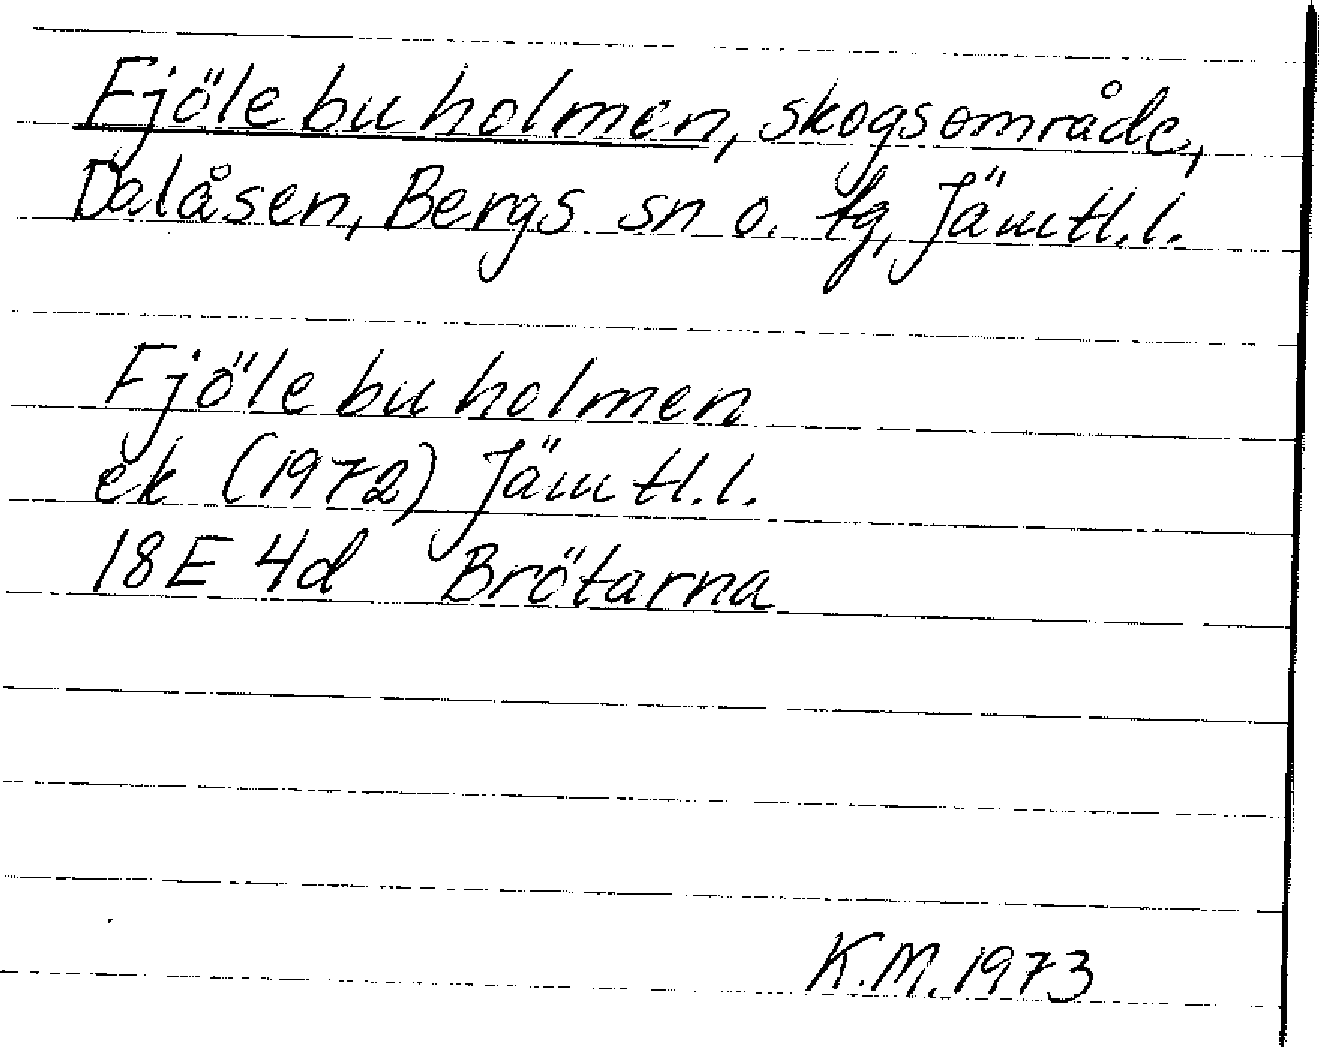 Fjölebuholmen, skogsområde,
Dalåsen, Bergs sn o. tg, Jämtl.l.
Fjölebuholmen
ek (1972) Jämtl.l.
18E 4d Brötarna
K.M. 1973